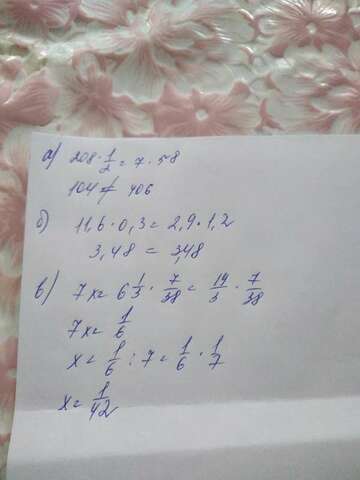 а) 208 · 1/2 = 7 · 58
104 ≠ 406
б) 11,6 · 0,3 = 2,9 · 1,2
3,48 = 3,48
в) 7x = 6 1/3 · 7/38 = 19/3 · 7/38
7x = 1/6
x = 1/6 : 7 = 1/6 · 1/7
x = 1/42